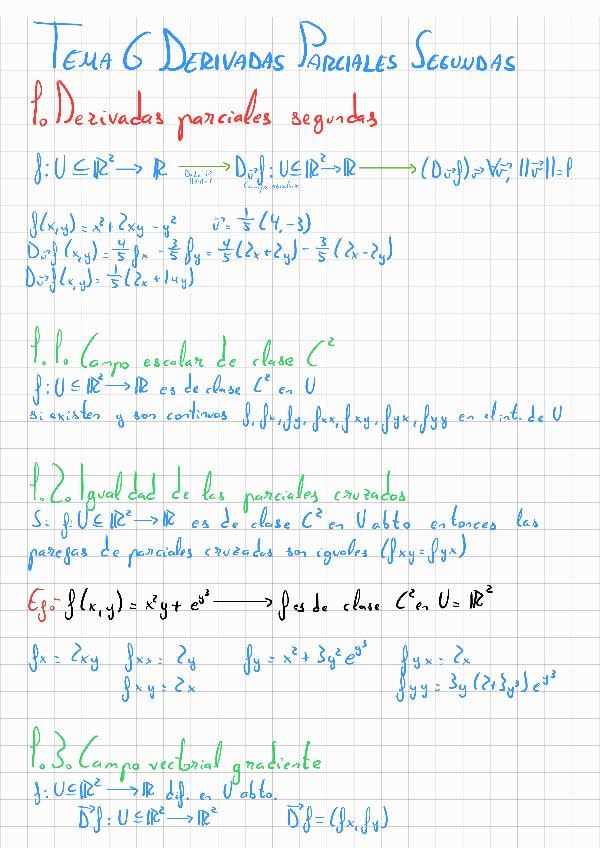 TEMA 6 DERIVADAS PARCIALES SEGUNDAS
1. Derivadas parciales segundas
f: U ⊆ ℝ² → ℝ → D_v⃗ f: U ⊆ ℝ² → ℝ → (D_v⃗ f)_v⃗ ∀v⃗, ||v⃗|| = 1
Campo escalar
f(x,y) = x² + 2xy - y² v⃗ = 1/5 (4, -3)
D_v⃗ f(x,y) = 4/5 fx - 3/5 fy = 4/5 (2x + 2y) - 3/5 (2x - 2y)
D_v⃗ f(x,y) = 1/5 (2x + 14y)
1.1. Campo escalar de clase C²
f: U ⊆ ℝ² → ℝ es de clase C² en U
si existen y son continuos f, fx, fy, fxx, fxy, fyx, fyy en el int. de U
1.2. Igualdad de las parciales cruzados
Si f: U ⊆ ℝ² → ℝ es de clase C² en U abto entonces las
parejas de parciales cruzados son iguales (fxy = fyx)
Ej:- f(x,y) = x²y + e^y³ → f es de clase C² en U = ℝ²
fx = 2xy fxx = 2y fy = x² + 3y² e^y³ fyx = 2x
fxy = 2x fyy = 3y (2 + 3y³) e^y³
1.3. Campo vectorial gradiente
f: U ⊆ ℝ² → ℝ dif. en U abto.
D⃗f: U ⊆ ℝ² → ℝ² D⃗f = (fx, fy)